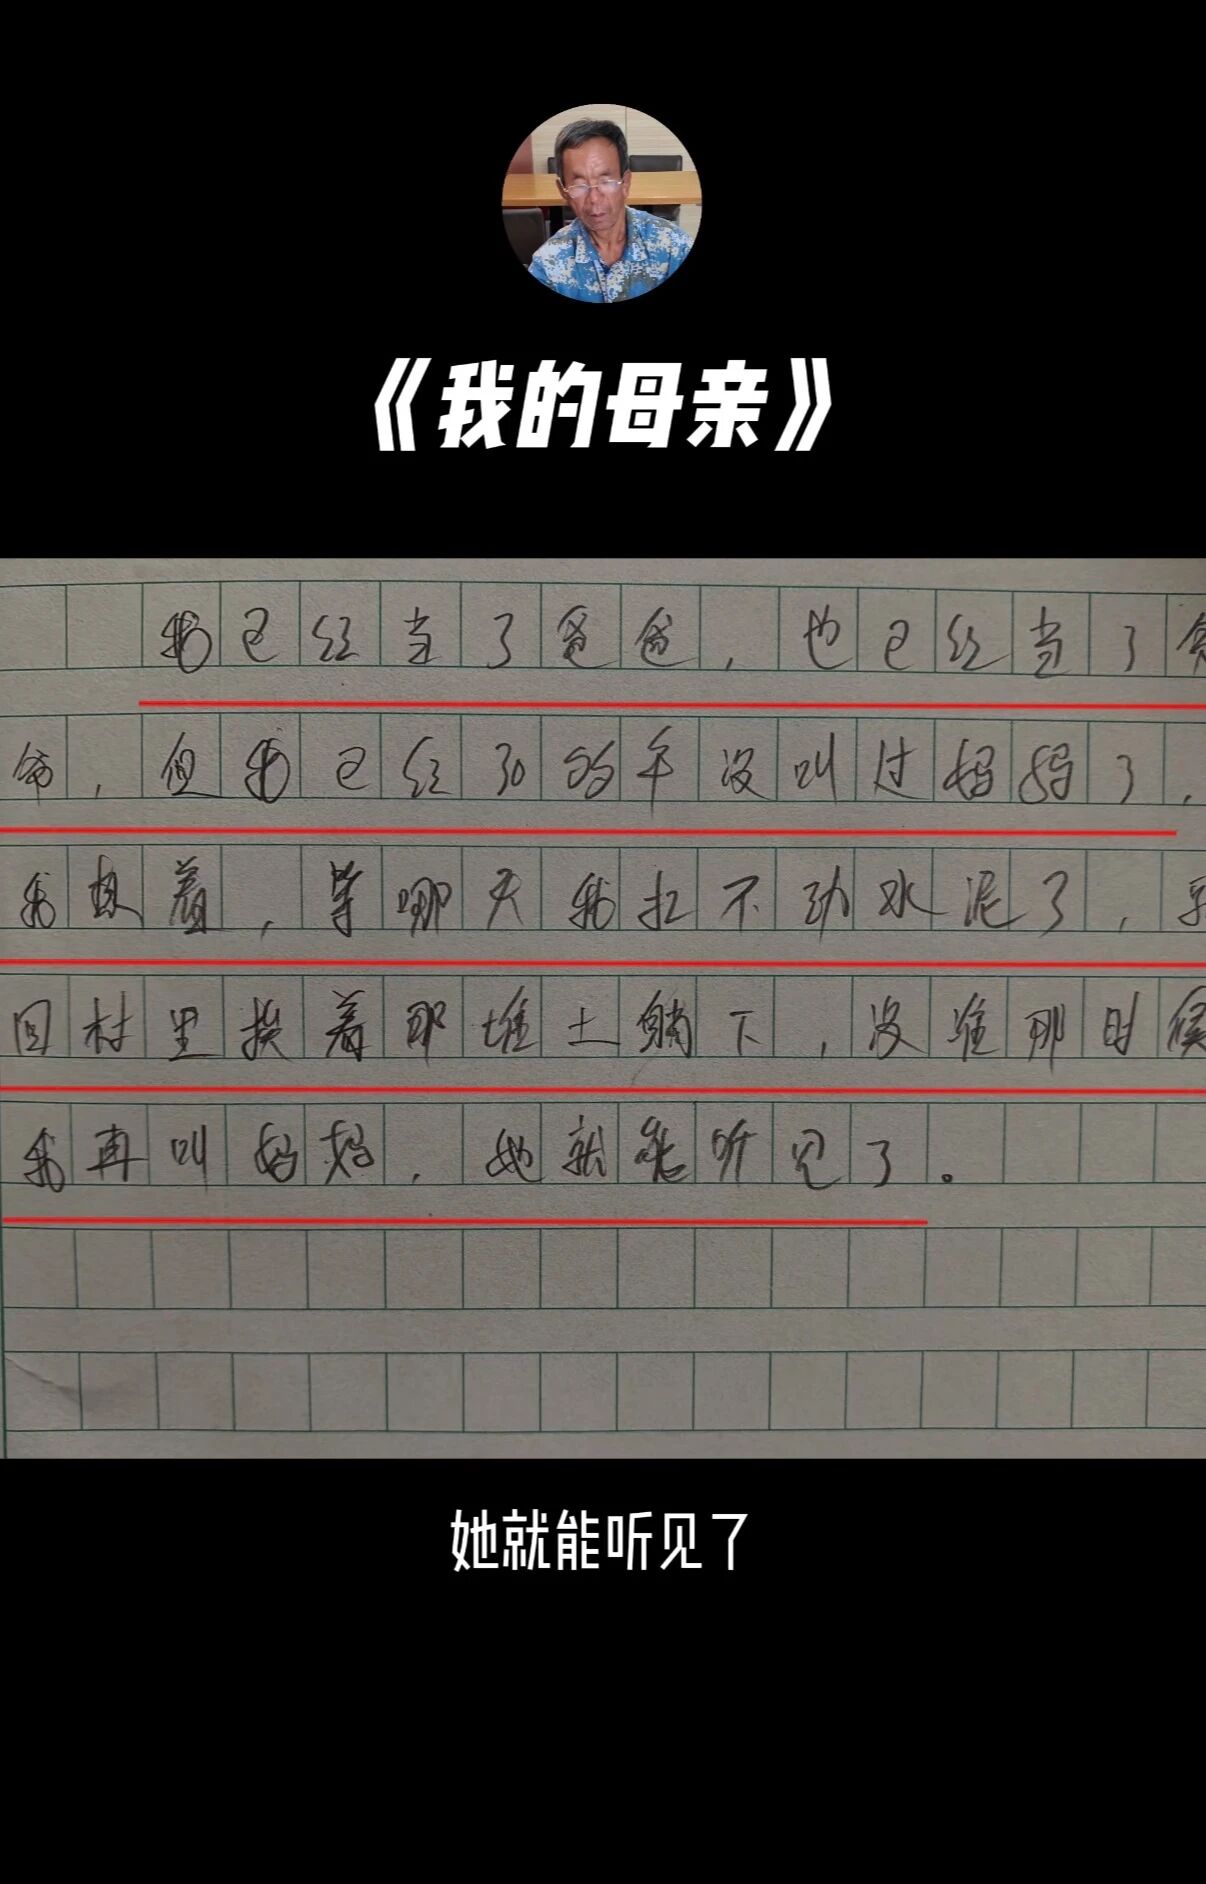 《我的母亲》
我已经当了爸爸，也已经当了爷
爷，但我已经30多年没叫过妈妈了，
我想着，等哪天我扛不动水泥了，
回村里挨着那堆土躺下，没准那时候
我再叫妈妈，她就能听见了。
她就能听见了